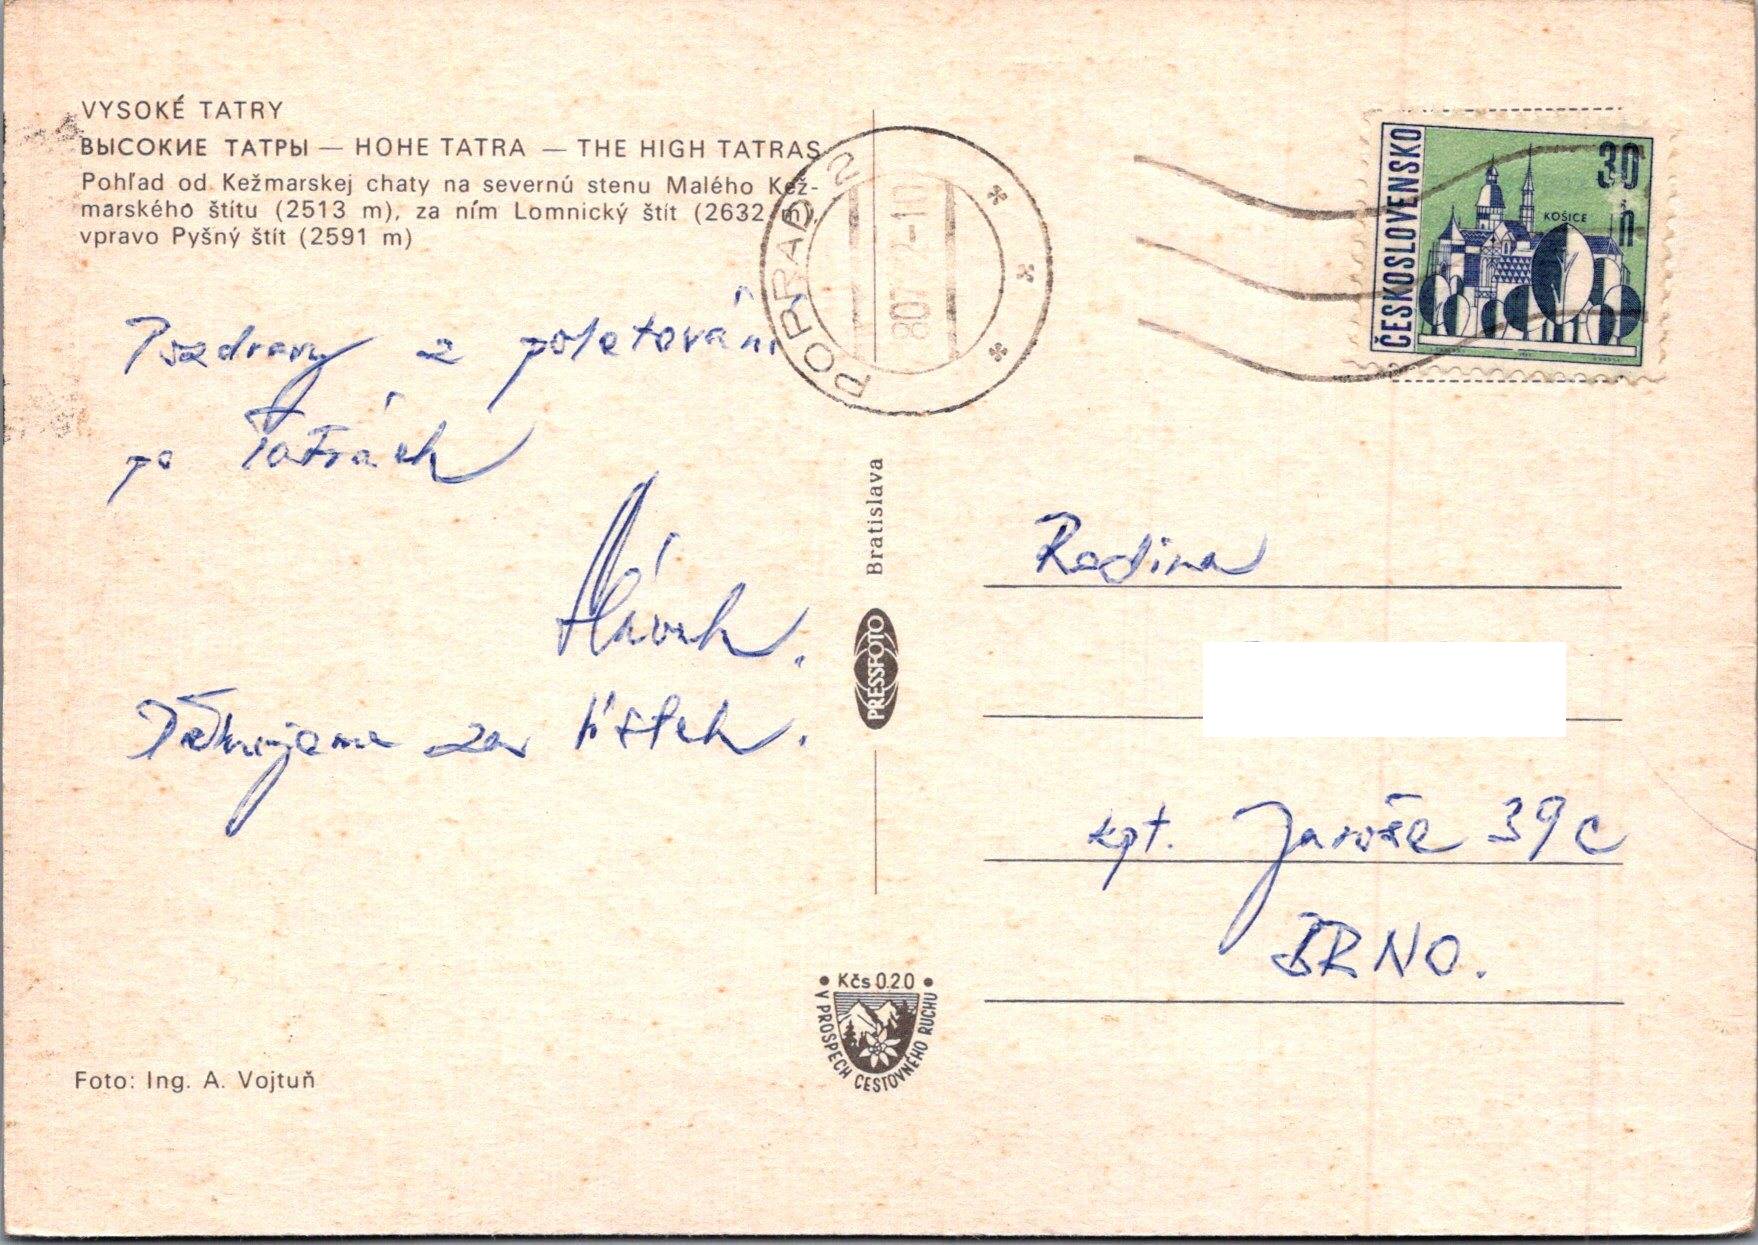 VYSOKÉ TATRY
ВЫСОКИЕ ТАТРЫ — HOHE TATRA — THE HIGH TATRAS
Pohľad od Kežmarskej chaty na severnú stenu Malého Kež-
marského štítu (2513 m), za ním Lomnický štít (2632 m),
vpravo Pyšný štít (2591 m)
POPRAD 2
ČESKOSLOVENSKO
30
h
KOŠICE
Pozdravy z poletování
po Tatrách
Děkujeme za lístek.
Bratislava
PRESSFOTO
Rodina
kpt. Jaroše 39c
BRNO.
Kčs 0.20
V PROSPECH CESTOVNÉHO RUCHU
Foto: Ing. A. Vojtuň